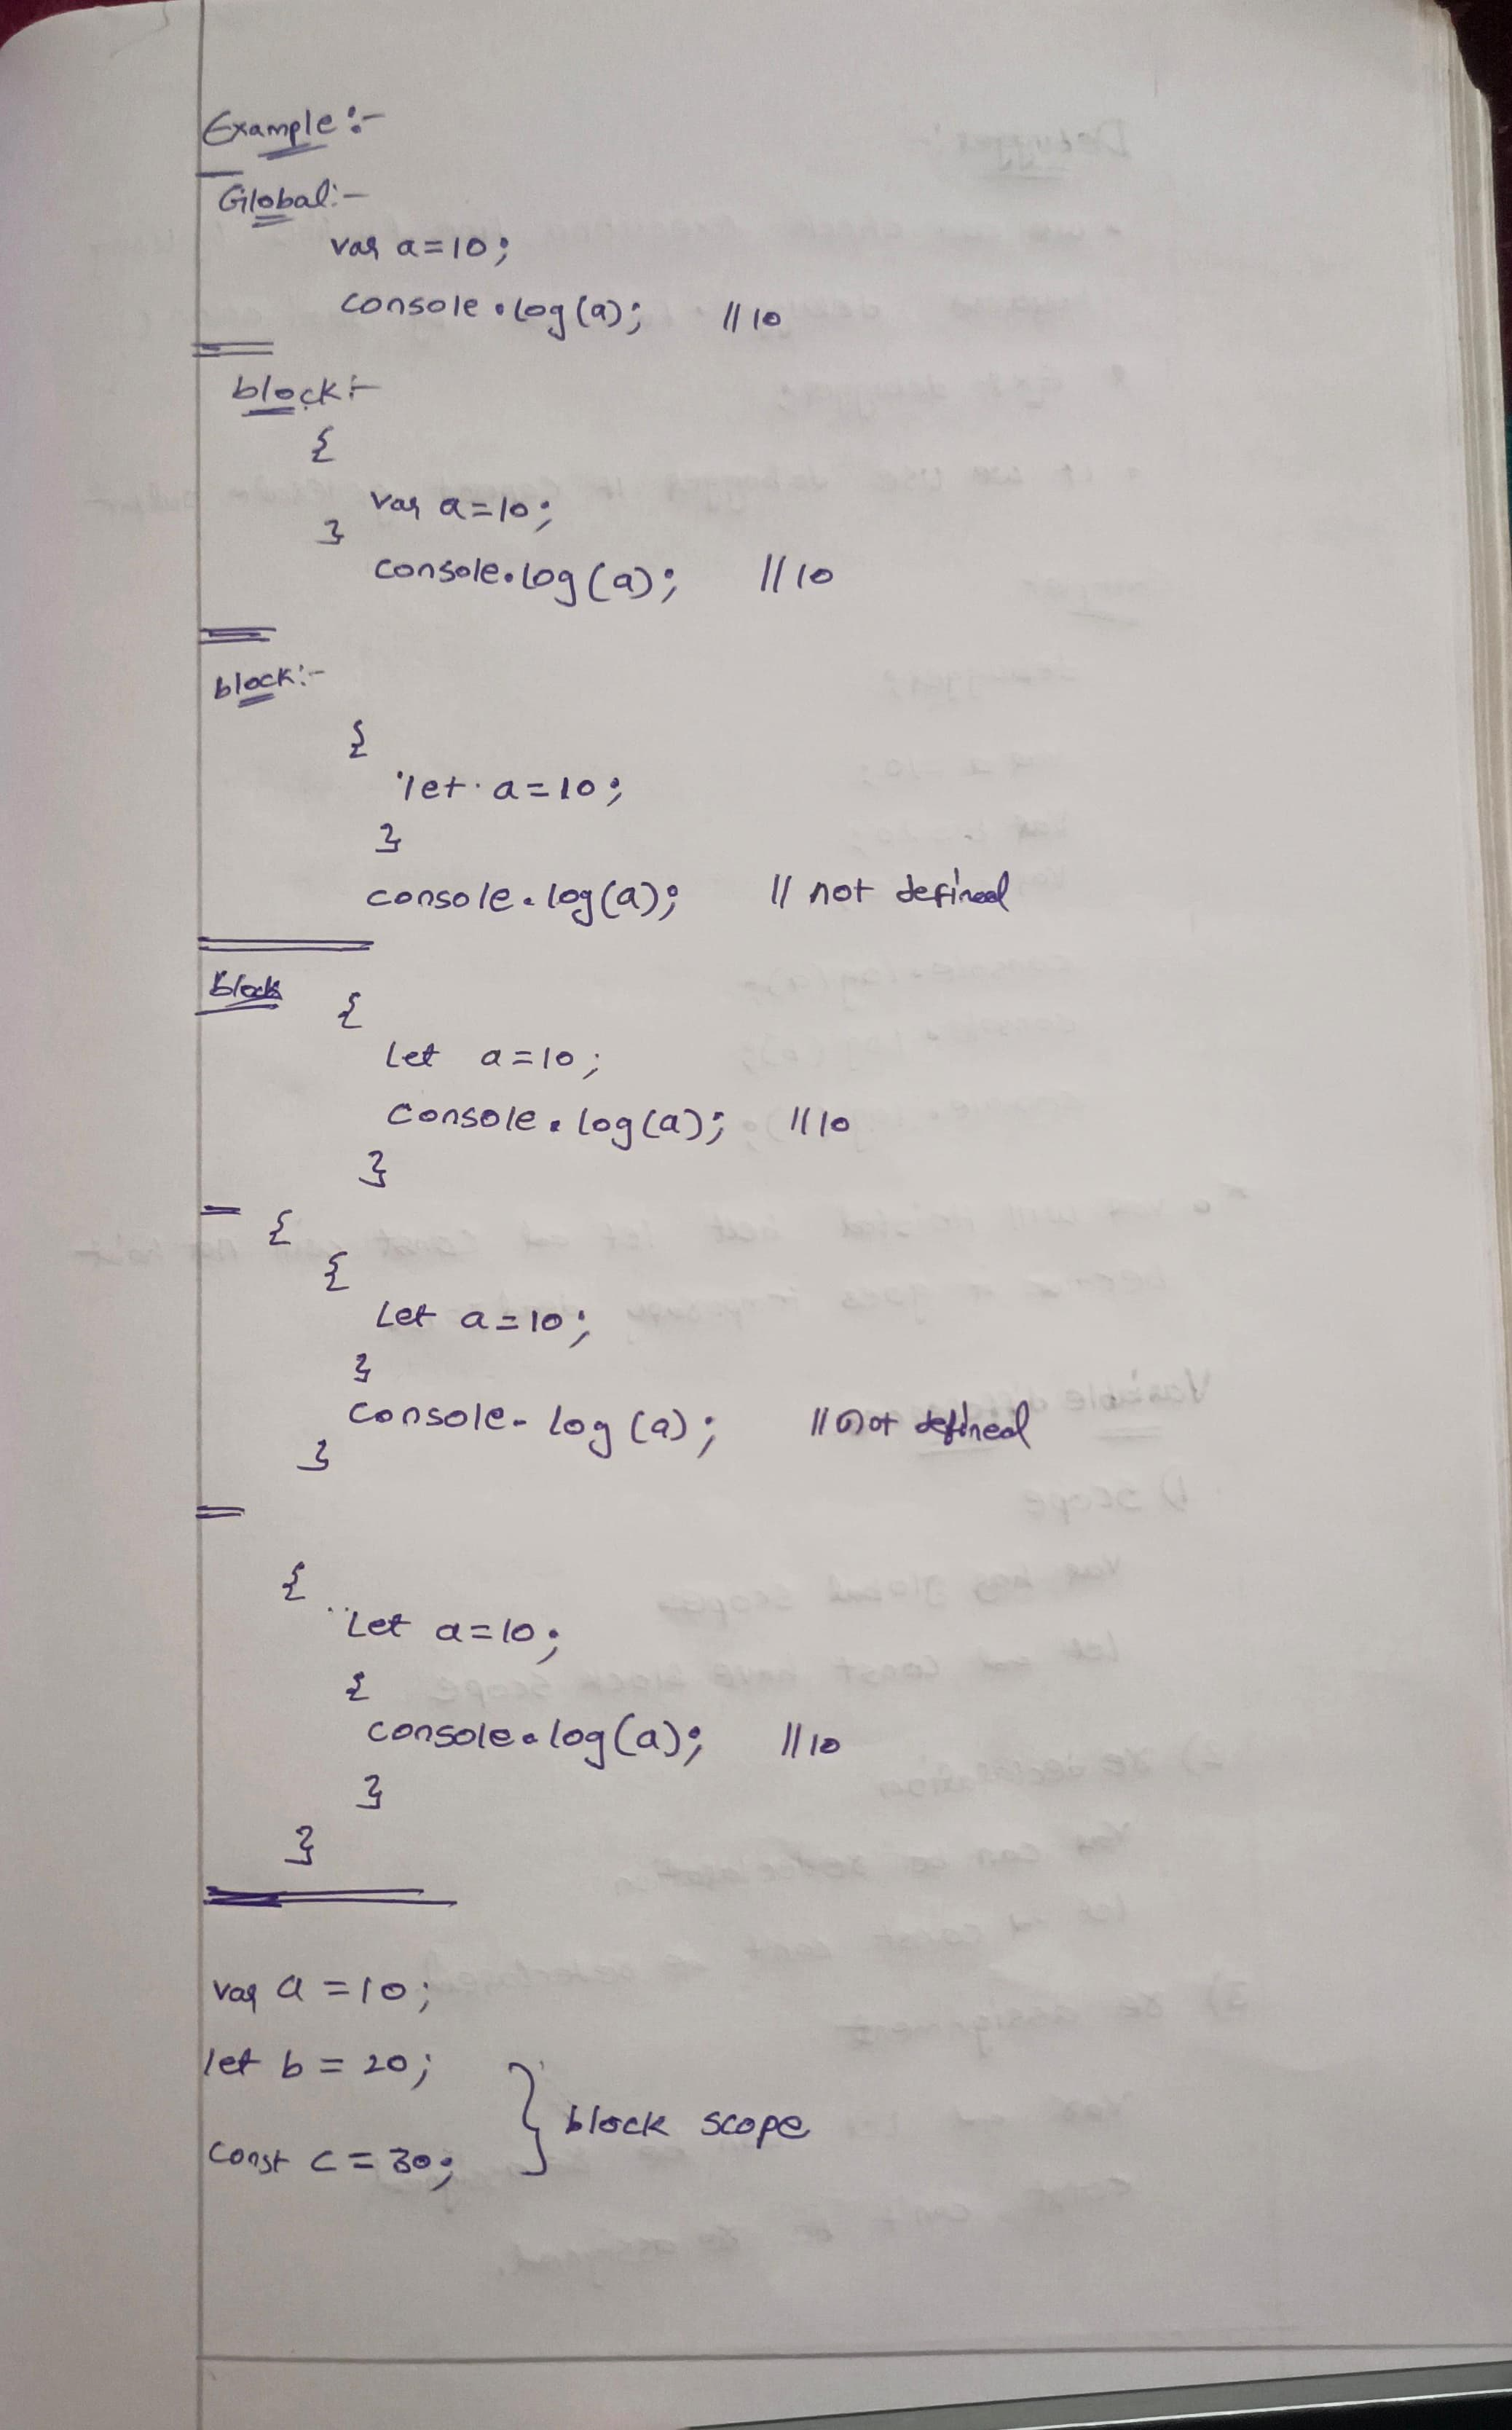 Example:-
Global:-
var a=10;
console.log(a); //10
block:-
{
var a=10;
}
console.log(a); //10
block:-
{
let a=10;
}
console.log(a); // not defined
block {
Let a=10;
console.log(a); //10
}
{
{
Let a=10;
}
console.log(a); // not defined
}
{
Let a=10;
{
console.log(a); //10
}
}
var a=10;
let b=20;
} block scope
const c=30;